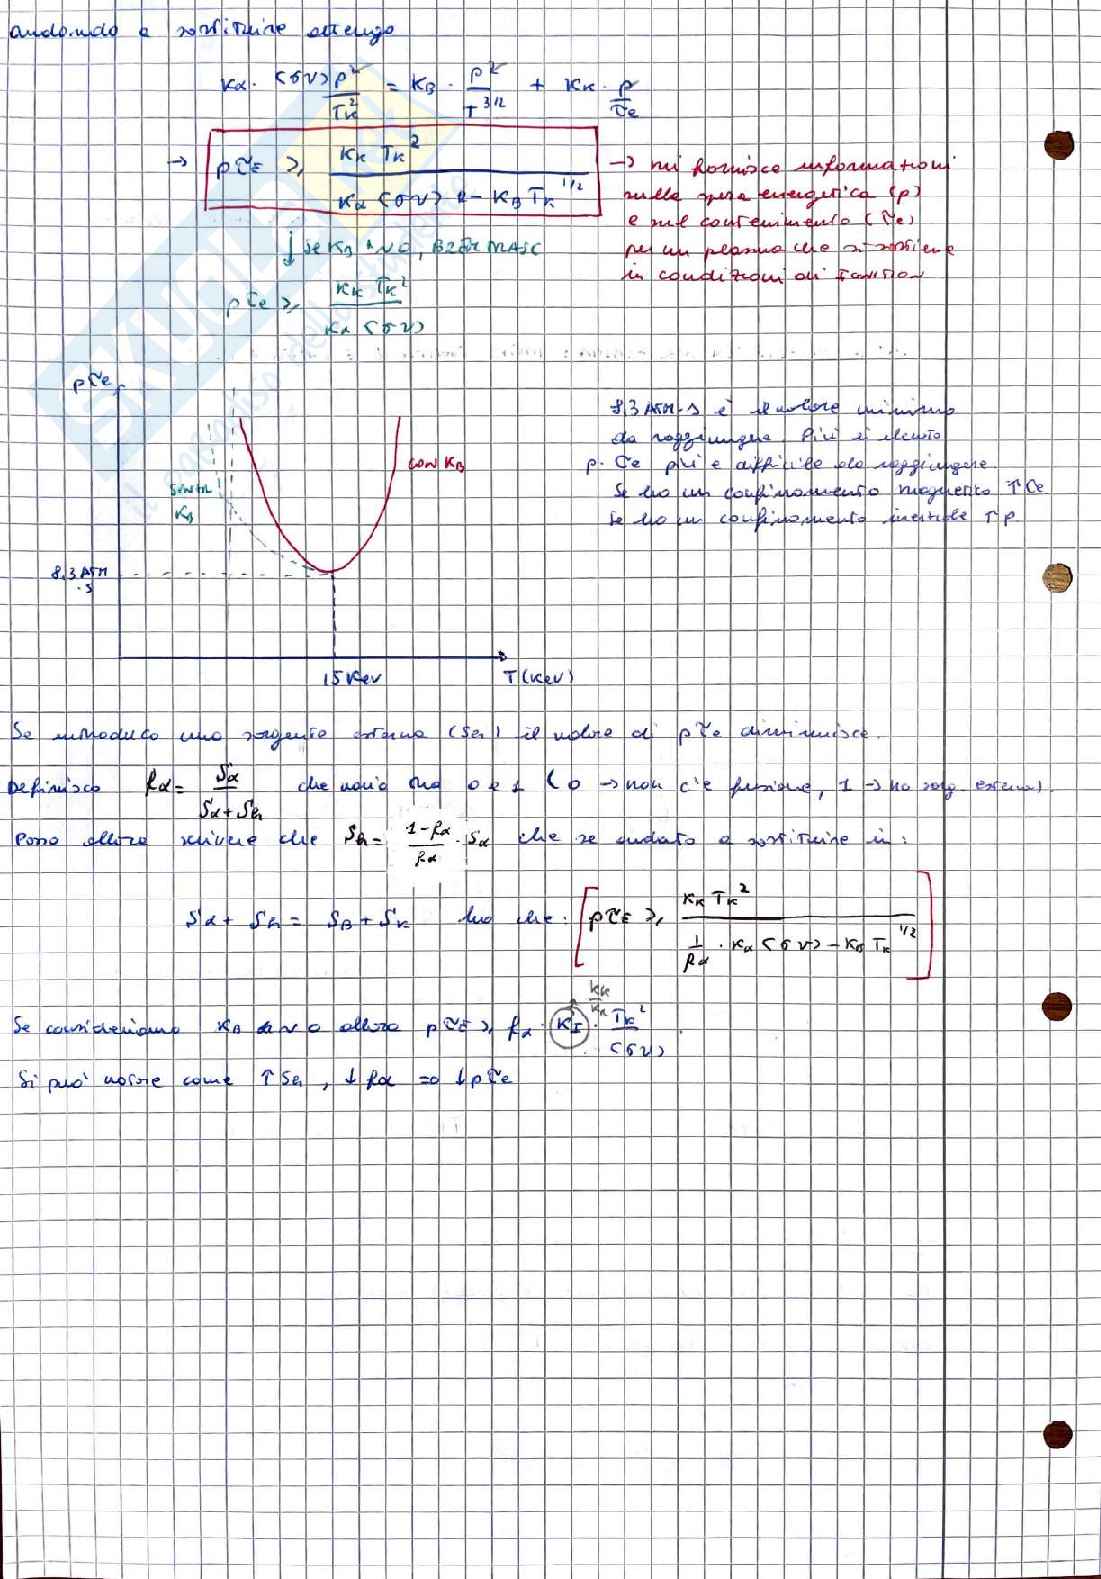 andando a sostituire ottengo
Kα · <σv> p²/Tk² = KB · p²/T^3/2 + KK · p/τe
→ pτE ≥ KK TK² / Kα <σv> - KB TK^1/2 → mi fornisce informazioni
sulla spesa energetica (p)
e sul contenimento (τe)
per un plasma che si sostiene
in condizioni di
↓ se KB ~ 0,
pτe ≥ KK TK² / Kα <σv>
pτe
8,3 ATM·s è il valore minimo
da raggiungere. Più è elevato
p·τe più è difficile da raggiungere.
Se ho un confinamento magnetico ↑τe
Se ho un confinamento inerziale ↑p
CON KB
SENZA
KB
8,3 ATM
·s
15 KeV T(KeV)
Se introduco una sorgente esterna (Sh) il valore di pτe diminuisce.
Definisco fα = Sα / Sα + Sh che varia tra 0 e 1 (0 → non c'è fusione, 1 → no sorg. esterna).
Posso allora scrivere che Sh = 1-fα / fα · Sα che se andato a sostituire in:
Sα + Sh = SB + SK ho che: [pτE ≥ KK TK² / 1/fα · Kα <σv> - KB TK^1/2]
KK/Kα
Se consideriamo KB ~ 0 allora pτE ≥ fα · KI · TK² / <σv>
Si può notare come ↑Sh, ↓fα => ↓pτe